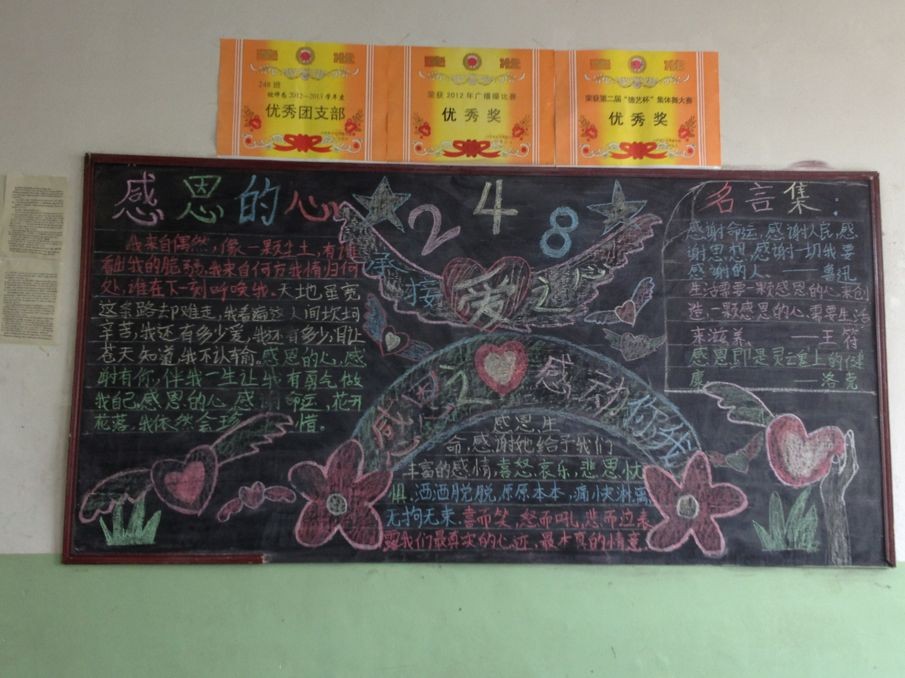 248班
2012-2013学年度
优秀团支部
荣获2012年广播操比赛
优秀奖
荣获第二届“德艺杯”集体舞大赛
优秀奖
感恩的心
我来自偶然,像一颗尘土,有谁
看出我的脆弱,我来自何方我情归何
处,谁在下一刻呼唤我。天地虽宽
这条路却难走,我看遍这人间坎坷
辛苦,我还有多少爱,我还有多少泪,让
苍天知道,我不认输,感恩的心,感
谢有你,伴我一生让我有勇气做
我自己,感恩的心,感谢命运,花开
花落,我依然会珍惜。
248
接爱之心
感恩之心感动你我
感恩生
命,感谢她给予我们
丰富的感情,喜怒哀乐,悲思忧
惧,洒洒脱脱,原原本本,痛快淋漓,
无拘无束.喜而笑,怒而吼,悲而泣,表
露我们最真实的心迹,最本真的情意.
名言集:
感谢命运,感谢人民,感
谢思想,感谢一切我要
感谢的人。——鲁迅
生活需要一颗感恩的心来创
造,一颗感恩的心需要生活
来滋养。——王符
感恩即是灵魂上的健
康——洛克